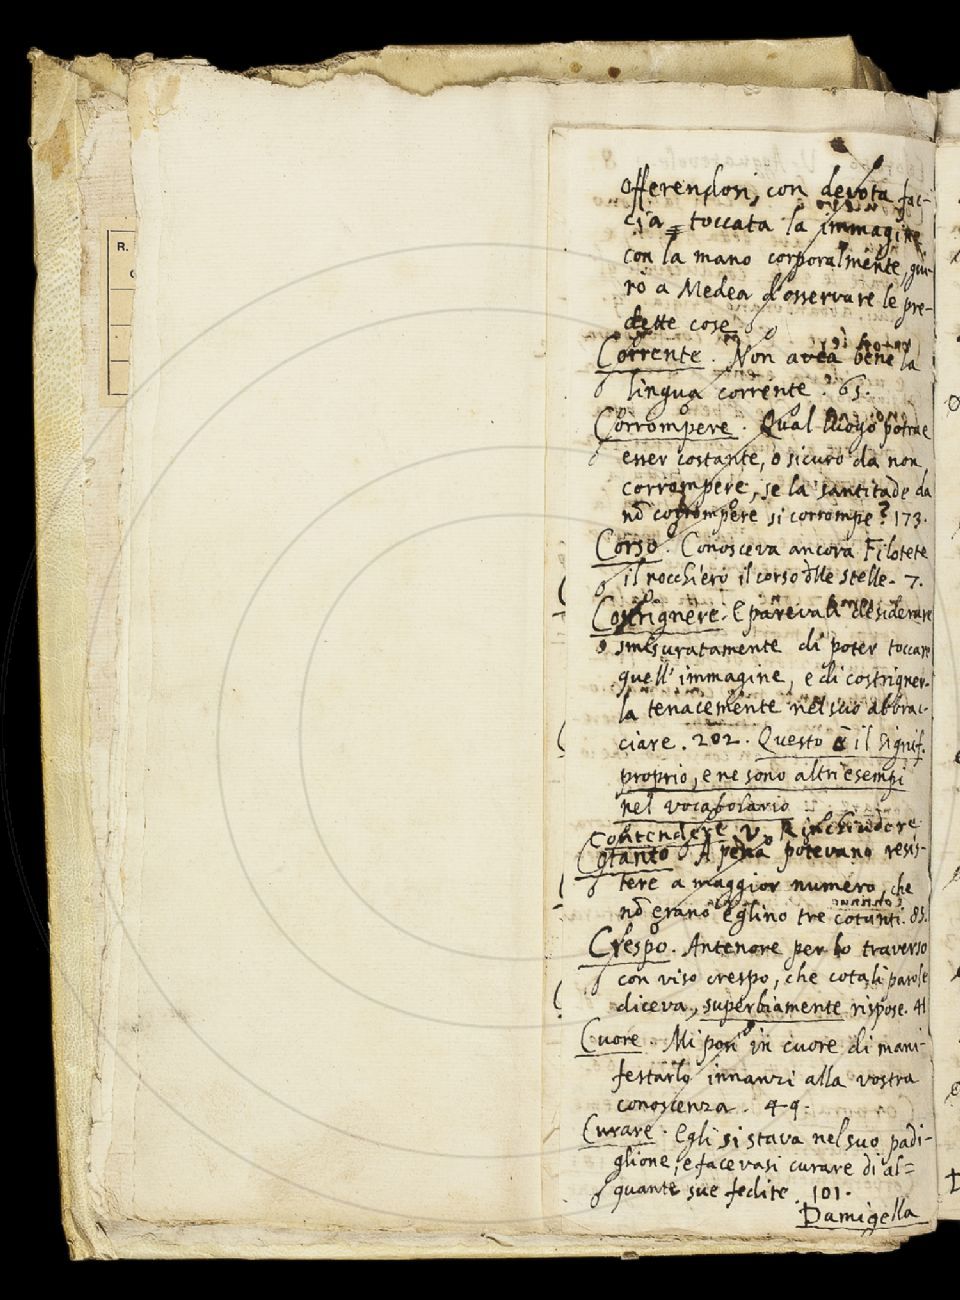 offerendosi, con devota fac-
cia toccata la immagine
con la mano corporalmente, giu-
rò a Medea d'osservare le pre-
dette cose
Corrente. Non avea bene la
lingua corrente. 65.
Corrompere. Qual luogo potrae
esser costante, o sicuro da non
corrompere, se la santitade da
nō corrompere si corrompe? 173.
Corso. Conosceva ancora Filotete
il nocchiero il corso dlle stelle. 7.
Costrignere. E pareva desiderare
smisuratamente di poter toccare
quell'immagine, e di costrigner-
la tenacemente nel suo abbrac-
ciare. 202. Questo è il signif.
proprio, e ne sono altri esempi
nel vocabolario
Contendere v. Rinchiudere
Cotanto A pena potevano resis-
tere a maggior numero, che
nō erano eglino tre cotanti. 85.
Crespo. Antenore per lo traverso
con viso crespo, che cotali parole
diceva, superbiamente rispose. 41
Cuore. Mi posi in cuore di mani-
festarlo innanzi alla vostra
conoscenza. 49.
Curare. Egli si stava nel suo padi-
glione, e facevasi curare di al=
quante sue fedite. 101.
Damigella
R.